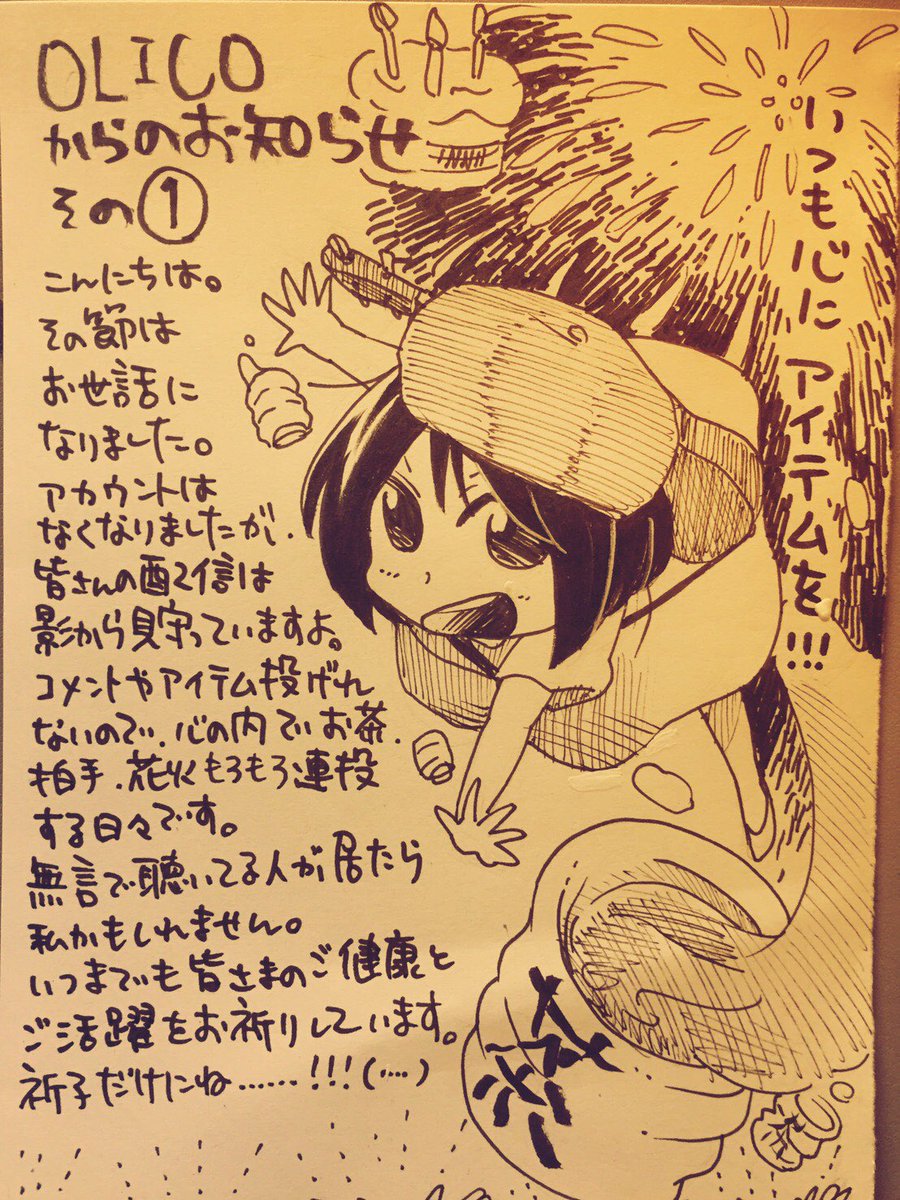 OLICO
からのお知らせ
その①
いつも心にアイテムを!!!
こんにちは。
その節は
お世話に
なりました。
アカウントは
なくなりましたが、
皆さんの配信は
影から見守っていますよ。
コメントやアイテム投げれ
ないので、心の内でお茶、
拍手、花火もろもろ連投
する日々です。
無言で聴いてる人が居たら
私かもしれません。
いつまでも皆さまのご健康と
ご活躍をお祈りしています。
祈子だけにね……!!!(….)